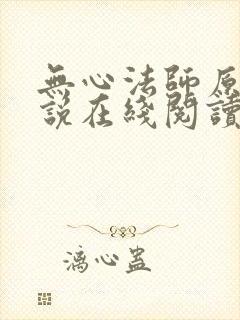 無心法師原
說在綫閱讀
漓心蠱